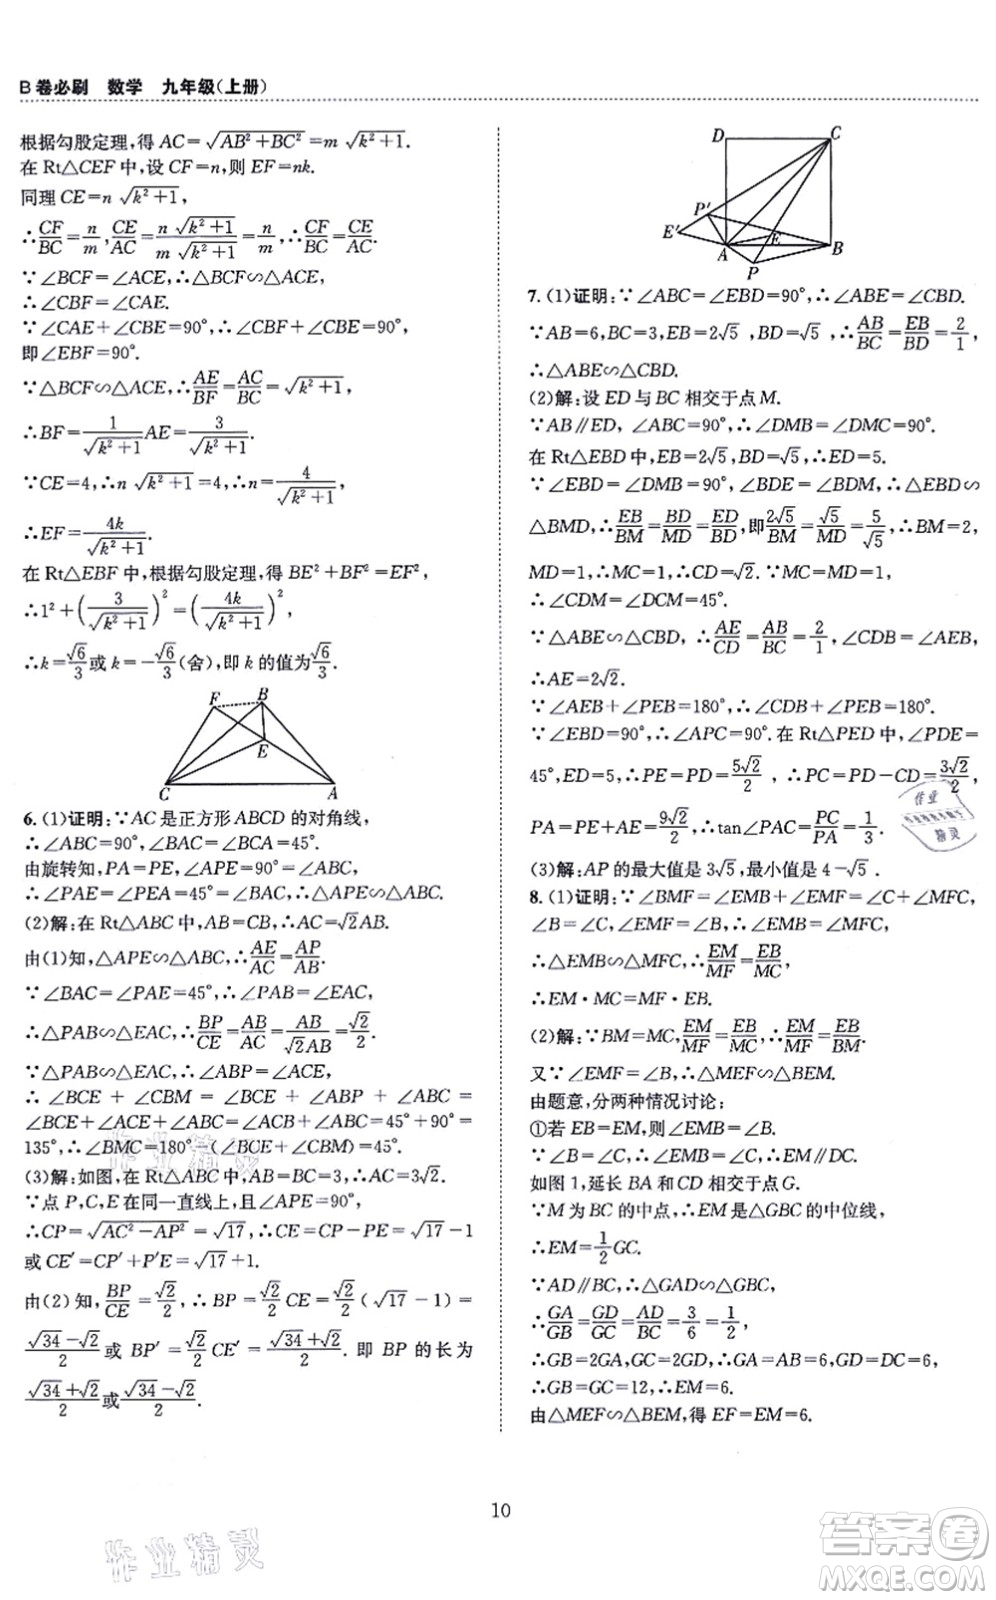 B卷必刷 数学 九年级(上册)
根据勾股定理,得 AC=√(AB²+BC²)=m√(k²+1).
在 Rt△CEF 中,设 CF=n,则 EF=nk.
同理 CE=n√(k²+1),
∴CF/BC=n/m,CE/AC=n√(k²+1)/m√(k²+1)=n/m,∴CF/BC=CE/AC.
∵∠BCF=∠ACE,∴△BCF∽△ACE.
∴∠CBF=∠CAE.
∵∠CAE+∠CBE=90°,∴∠CBF+∠CBE=90°,
即∠EBF=90°.
∵△BCF∽△ACE,∴AE/BF=AC/BC=√(k²+1).
∴BF=1/√(k²+1) AE=3/√(k²+1).
∵CE=4,∴n√(k²+1)=4,∴n=4/√(k²+1).
∴EF=4k/√(k²+1).
在 Rt△EBF 中,根据勾股定理,得 BE²+BF²=EF²,
∴1²+(3/√(k²+1))²=(4k/√(k²+1))²,
∴k=√6/3 或 k=-√6/3(舍),即 k 的值为√6/3.
F B E C A
6. (1)证明:∵AC 是正方形 ABCD 的对角线,
∴∠ABC=90°,∠BAC=∠BCA=45°.
由旋转知,PA=PE,∠APE=90°=∠ABC,
∴∠PAE=∠PEA=45°=∠BAC,∴△APE∽△ABC.
(2)解:在 Rt△ABC 中,AB=CB,∴AC=√2AB.
由(1)知,△APE∽△ABC,∴AE/AC=AP/AB.
∵∠BAC=∠PAE=45°,∴∠PAB=∠EAC,
∴△PAB∽△EAC,∴BP/CE=AB/AC=AB/√2AB=√2/2.
∵△PAB∽△EAC,∴∠ABP=∠ACE,
∴∠BCE+∠CBM=∠BCE+∠ABP+∠ABC=
∠BCE+∠ACE+∠ABC=∠ACB+∠ABC=45°+90°=
135°,∴∠BMC=180°-(∠BCE+∠CBM)=45°.
(3)解:如图,在 Rt△ABC 中,AB=AD=3,∴AC=3√2.
∵点 P,C,E 在同一直线上,且∠APE=90°,
∴CP=√(AC²-AP²)=√17,∴CE=CP-PE=√17-1
或 CE′=CP′+P′E=√17+1.
由(2)知,BP/CE=√2/2,∴BP=√2/2 CE=√2/2(√17-1)=
(√34-√2)/2 或 BP′=√2/2 CE′=(√34+√2)/2.即 BP 的长为
(√34+√2)/2 或 (√34-√2)/2.
D C P′ E′ E A B P
7. (1)证明:∵∠ABC=∠EBD=90°,∴∠ABE=∠CBD.
∵AB=6,BC=3,EB=2√5,BD=√5,∴AB/BC=EB/BD=2/1,
∴△ABE∽△CBD.
(2)解:设 ED 与 BC 相交于点 M.
∵AB∥ED,∠ABC=90°,∴∠DMB=∠DMC=90°.
在 Rt△EBD 中,EB=2√5,BD=√5,∴ED=5.
∵∠EBD=∠DMB=90°,∠BDE=∠BDM,∴△EBD∽
△BMD,∴EB/BM=BD/MD=ED/BD,即2√5/BM=√5/MD=5/√5,∴BM=2,
MD=1,∴MC=1,∴CD=√2.∵MC=MD=1,
∴∠CDM=∠DCM=45°.
∵△ABE∽△CBD,∴AE/CD=AB/BC=2/1,∠CDB=∠AEB,
∴AE=2√2.
∵∠AEB+∠PEB=180°,∴∠CDB+∠PEB=180°.
∵∠EBD=90°,∴∠APC=90°.在 Rt△PED 中,∠PDE=
45°,ED=5,∴PE=PD=5√2/2,∴PC=PD-CD=3√2/2,
PA=PE+AE=9√2/2,∴tan∠PAC=PC/PA=1/3.
(3)解:AP 的最大值是 3√5,最小值是 4-√5.
8. (1)证明:∵∠BMF=∠EMB+∠EMF=∠C+∠MFC,
∠B=∠C=∠EMF,∴∠EMB=∠MFC,
∴△EMB∽△MFC,∴EM/MF=EB/MC,
∴EM·MC=MF·EB.
(2)解:∵BM=MC,EM/MF=EB/MC,∴EM/MF=EB/BM.
又∵∠EMF=∠B,∴△MEF∽△BEM.
由题意,分两种情况讨论:
①若 EB=EM,则∠EMB=∠B.
∵∠B=∠C,∴∠EMB=∠C,∴EM∥CD.
如图 1,延长 BA 和 CD 相交于点 G.
∵M 为 BC 的中点,∴EM 是△GBC 的中位线,
∴EM=1/2 GC.
∵AD∥BC,∴△GAD∽△GBC,
∴GA/GB=GD/GC=AD/BC=3/6=1/2,
∴GB=2GA,GC=2GD,∴GA=AB=6,GD=DC=6,
∴GB=GC=12,∴EM=6.
由△MEF∽△BEM,得 EF=EM=6.
10
作业精灵
作业精灵
答案卷
MXQE.COM